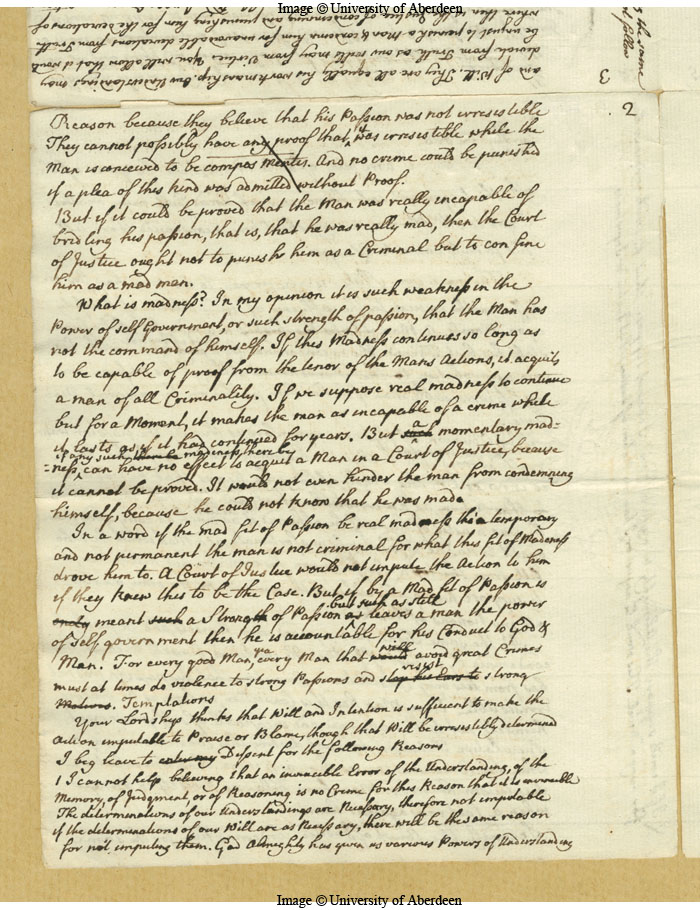 Image © University of Aberdeen
and of Will. They are all equally his workmanship. Our Understandings may
deviate from Truth as our wills may from Virtue. You will allow that it would
be unjust to punish & condemn him for unavoidable deviations from Truth
where then is the Justice of condemning and punishing him for the deviations of
the same
follow
3
2
Reason because they believe that his Passion was not irresistible
They cannot possibly have any proof that it was irresistible while the
Man is conceived to be compos mentis. And no crime could be punished
if a plea of this kind was admitted without Proof.
But if it could be proved that the Man was really incapable of
bridling his passion, that is, that he was really mad, then the Court
of Justice ought not to punish him as a Criminal but to confine
him as a mad man.
What is madness? In my opinion it is such weakness in the
Power of self Government, or such strength of passion, that the Man has
not the command of himself. If this Madness continues so long as
to be capable of proof from the tenor of the Mans Actions, it acquits
a man of all Criminality. If we suppose real madness to continue
but for a Moment, it makes the man as incapable of a crime while
it lasts as if it had continued for years. But such a momentary mad=
if any such there be madness, there be
=ness, can have no effect to acquit a Man in a Court of Justice, because
it cannot be proved. It would not even hinder the man from condemning
himself, because he could not know that he was mad.
In a word if the mad fit of Passion be real madness tho a temporary
and not permanent the man is not criminal for what this fit of Madness
drove him to. A Court of Justice would not impute the Action to him
if they knew this to be the Case. But if by a Mad fit of Passion is
but such as still
only meant such a Strength of Passion as leaves a man the power
of self government then he is accountable for his Conduct to God &
Man. For every good Man, yea every Man that would will avoid great Crimes
must at times do violence to strong Passions and stop his Ears to resist strong
Motives. Temptations
Your Lordship thinks that Will and Intention is sufficient to make the
action imputable to Praise or Blame, though that Will be irresistibly determined
I beg leave to enter my Dissent for the following Reasons
1 I cannot help believing that an invincible Error of the Understanding, of the
Memory, of Judgment, or of Reasoning is no Crime for this Reason that it is invincible
The determinations of our Understandings are Necessary, therefore not imputable
if the determinations of our Will are as Necessary, there will be the same reason
for not imputing them. God Almighty has given us various Powers of Understanding
Image © University of Aberdeen